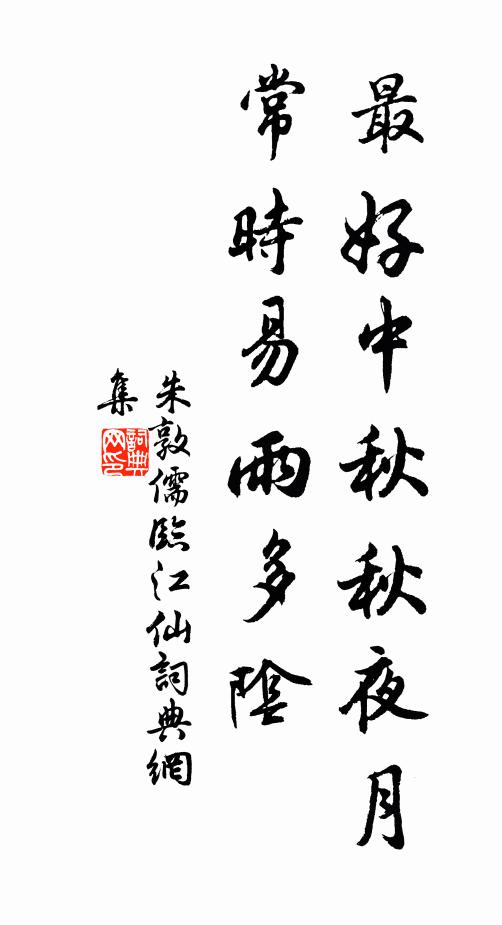 最好中秋秋夜月
常時易雨多陰
朱敦儒臨江仙詞典網
集
詞典網印